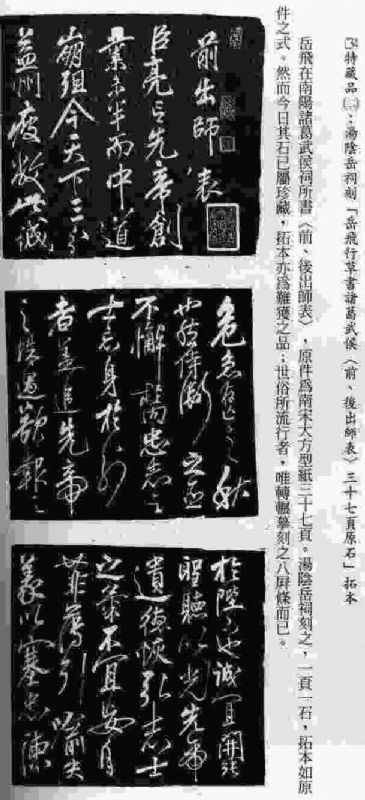 特藏品㈡：湯陰岳祠刻「岳飛行草書諸葛武侯〈前、後出師表〉三十七頁原石」拓本
岳飛在南陽諸葛武侯祠所書〈前、後出師表〉，原件為南宋大方型紙三十七頁。湯陰岳祠刻之，一頁一石，拓本如原
件之式。然而今日其石已屬珍藏，拓本亦為難獲之品；世俗所流行者，唯轉輾摹刻之八屏條而已。
前出師表
臣亮言先帝創
業未半而中道
崩殂今天下三分
益州疲敝此誠
危急存亡之秋
也然侍衛之臣
不懈於內忠志之
士忘身於外
者蓋追先帝
之殊遇欲報之
於陛下也誠宜開張
聖聽以光先帝
遺德恢弘志士
之氣不宜妄自
菲薄引喻失
義以塞忠諫